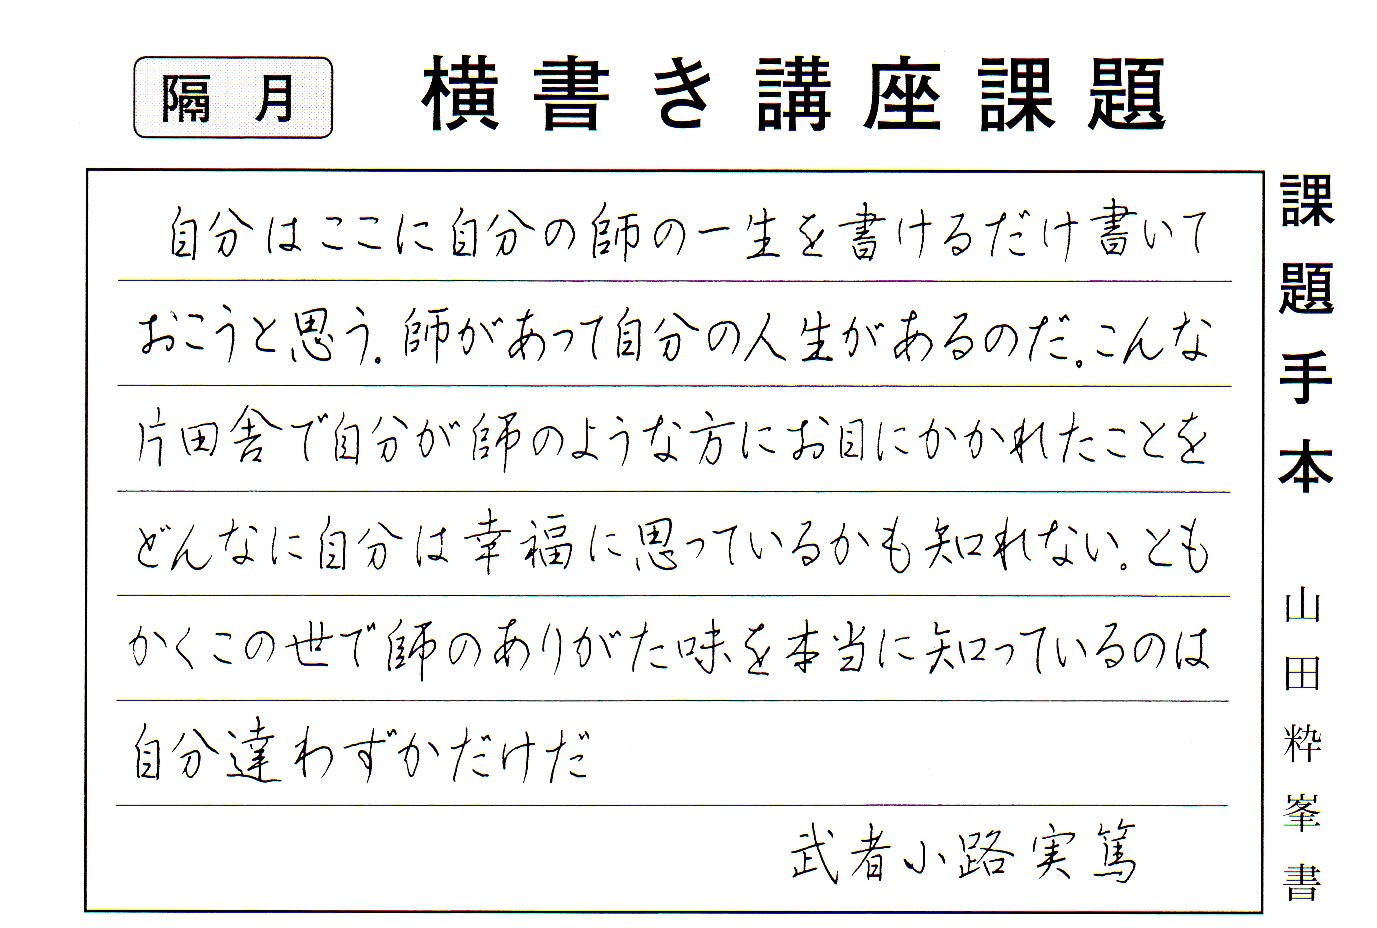 隔月
横書き講座課題
自分はここに自分の師の一生を書けるだけ書いて
おこうと思う。師があって自分の人生があるのだ。こんな
片田舎で自分が師のような方にお目にかかれたことを
どんなに自分は幸福に思っているかも知れない。とも
かくこの世で師のありがた味を本当に知っているのは
自分達わずかだけだ
武者小路実篤
課題手本
山田粋峯書